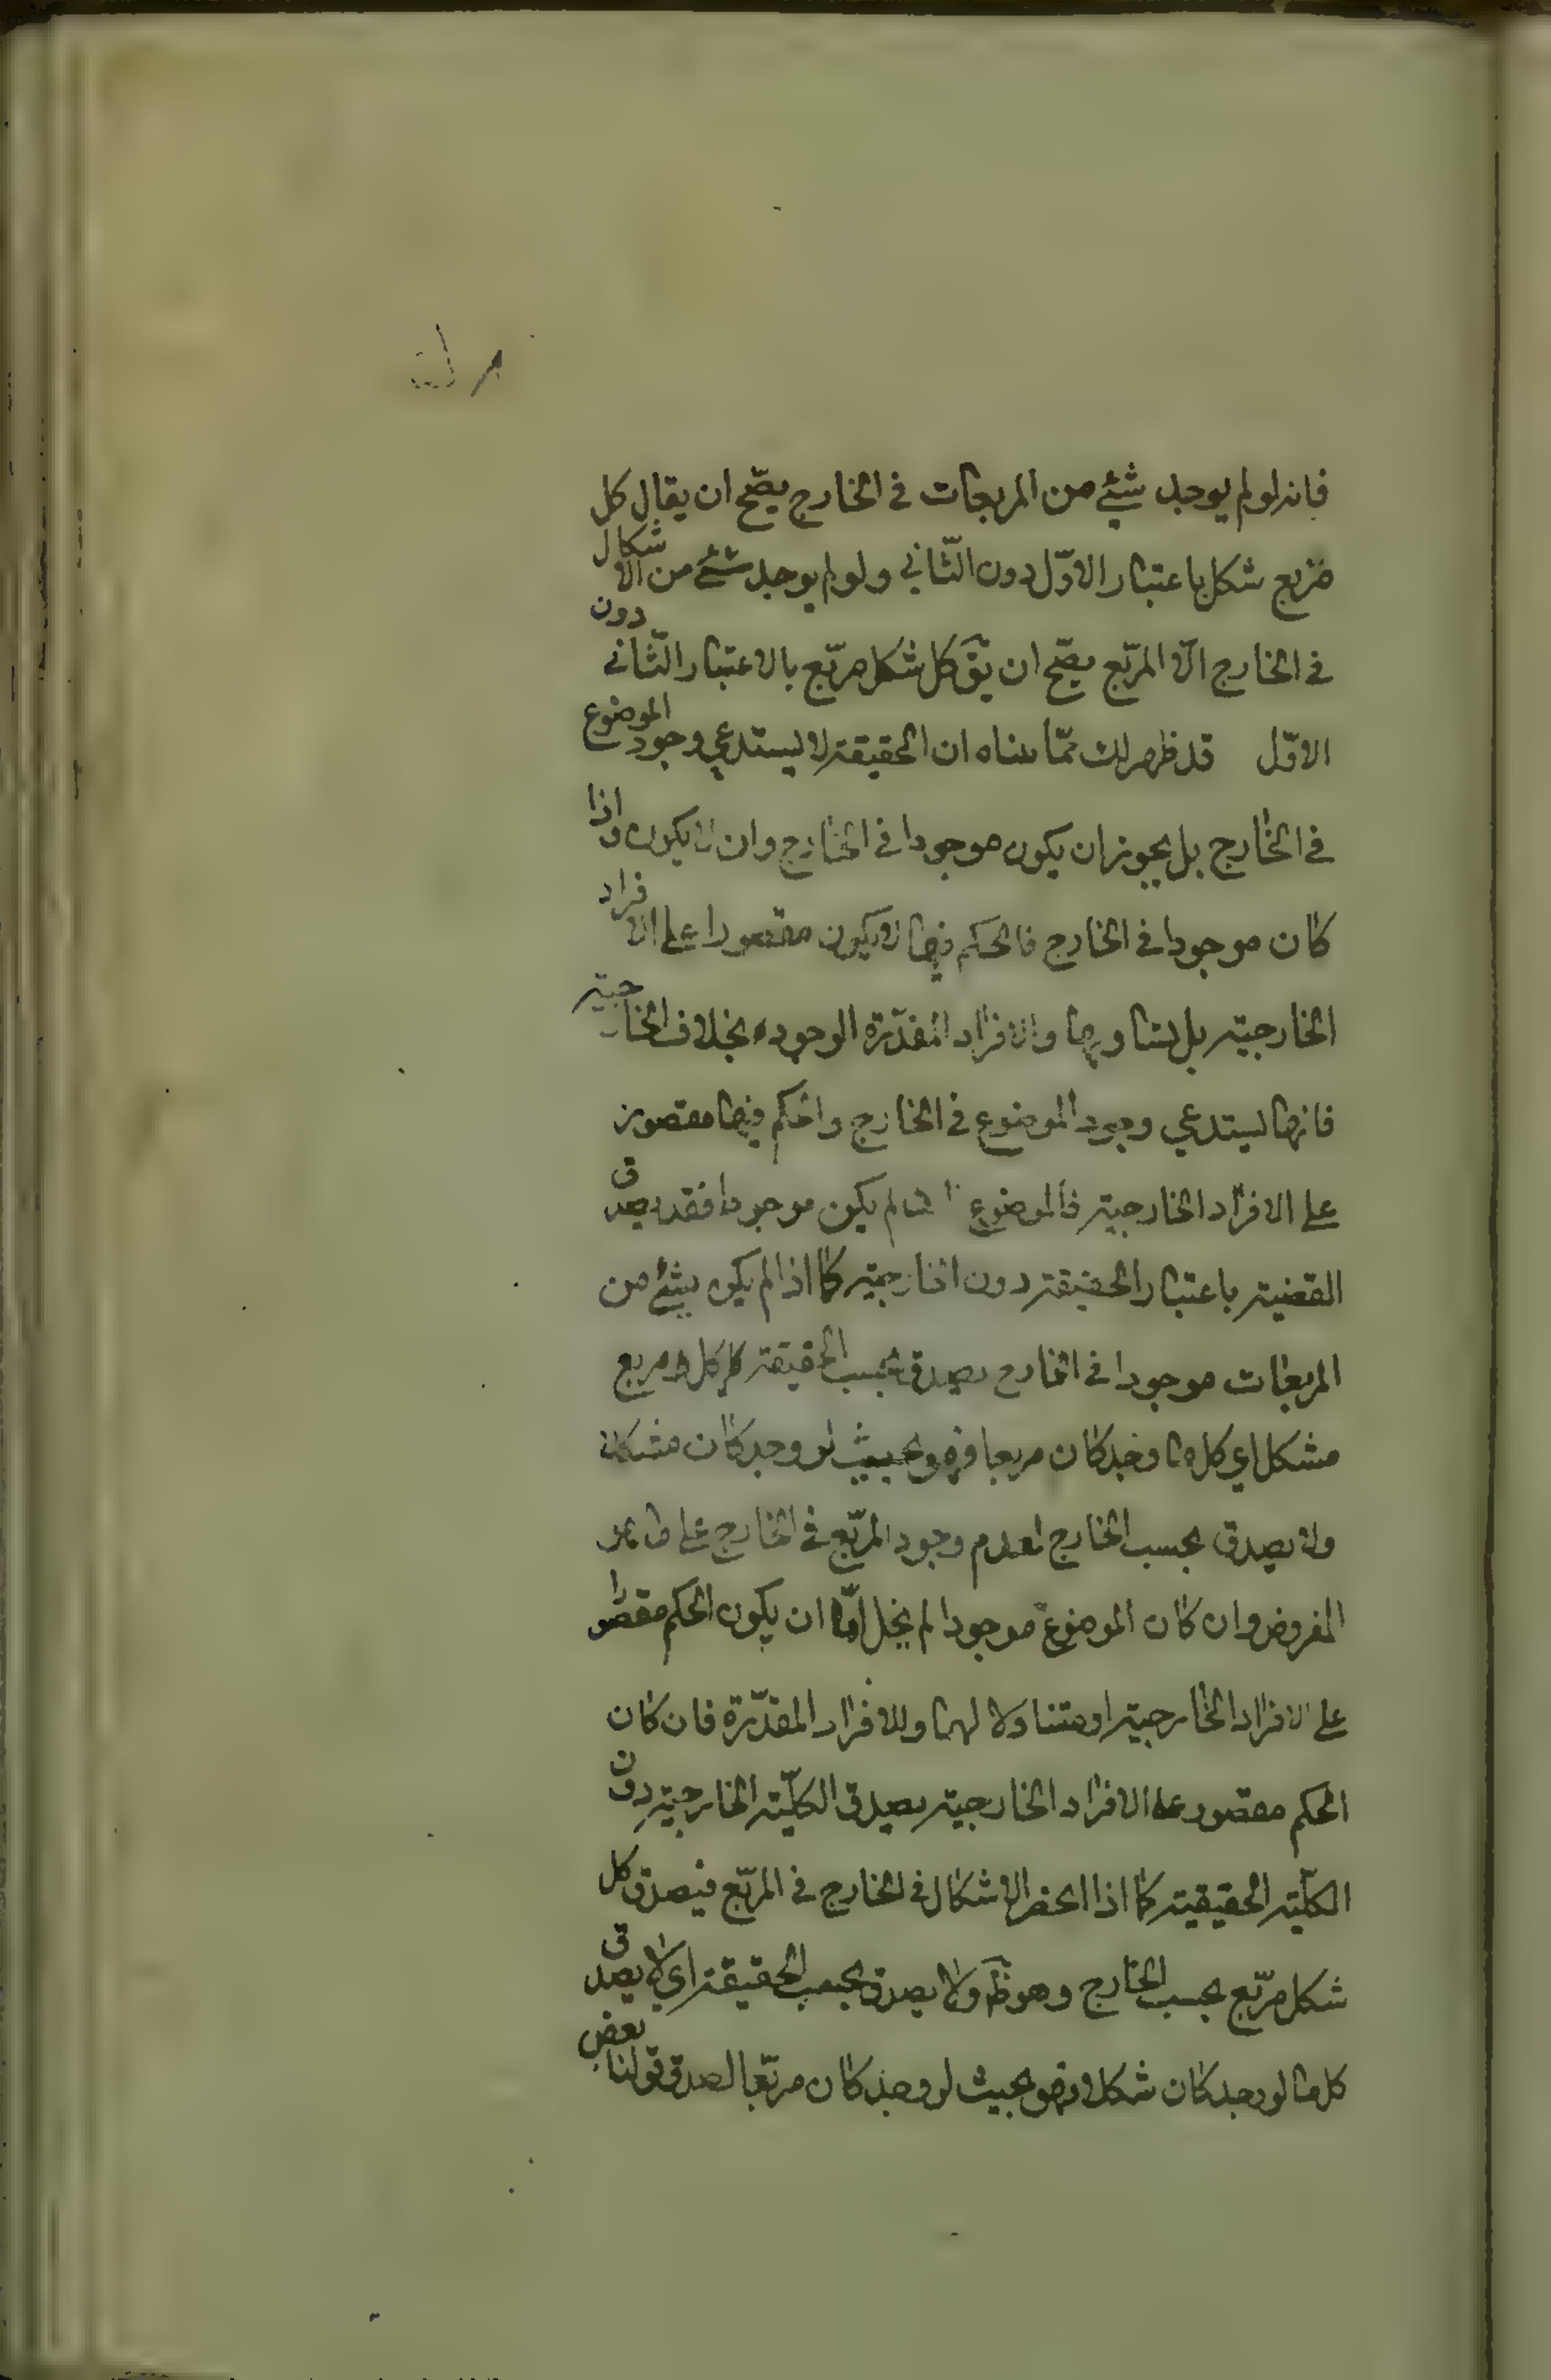 فانه لو لم يوجد شئ من المربعات فى الخارج يصّح ان يقال كل
مربع شكل باعتبار الاوّل دون الثّانى ولو لم يوجد شئ من الاشكال
فى الخارج الّا المربّع يصّح ان يقٓ كل شكل مربّع بالاعتبار الثّانى دون
الاوّل قد ظهر لك ممّا بيناه ان الحقيقة لا يستدعي وجود الموضوع
فى الخارج بل يجوز ان يكون موجودا فى الخارج وان لا يكون واذا
كان موجودا فى الخارج فالحكم فيها لا يكون مقصورا على الافراد
الخارجية بل يتناولها والافراد المقدّرة الوجود بخلاف الخارجية
فانها يستدعي وجود الموضوع فى الخارج والحكم فيها مقصور
على الافراد الخارجية فالموضوع لم يكن موجودا فقد يصدق
القضية باعتبار الحقيقة دون الخارجية كما اذا لم يكن شئ من
المربعات موجودا فى الخارج يصدق بحسب الحقيقة كل مربع
شكل اي كل ما لو وجد كان مربعا فهو بحيث لو وجد كان شكلا
ولا يصدق بحسب الخارج لعدم وجود المربّع فى الخارج على ما هو
المفروض وان كان الموضوع موجودا لم يخل امّا ان يكون الحكم مقصورا
على الافراد الخارجية او متناولا لها وللافراد المقدّرة فان كان
الحكم مقصورا على الافراد الخارجية يصدق الكلّية الخارجية دون
الكلّية الحقيقية كما اذا انحصر الاشكال فى الخارج فى المربّع فيصدق كل
شكل مربّع بحسب الخارج وهو ظٓ ولا يصدق بحسب الحقيقة اي لا يصدق
كل ما لو وجد كان شكلا فهو بحيث لو وجد كان مربّعا لصدق قولنا بعض